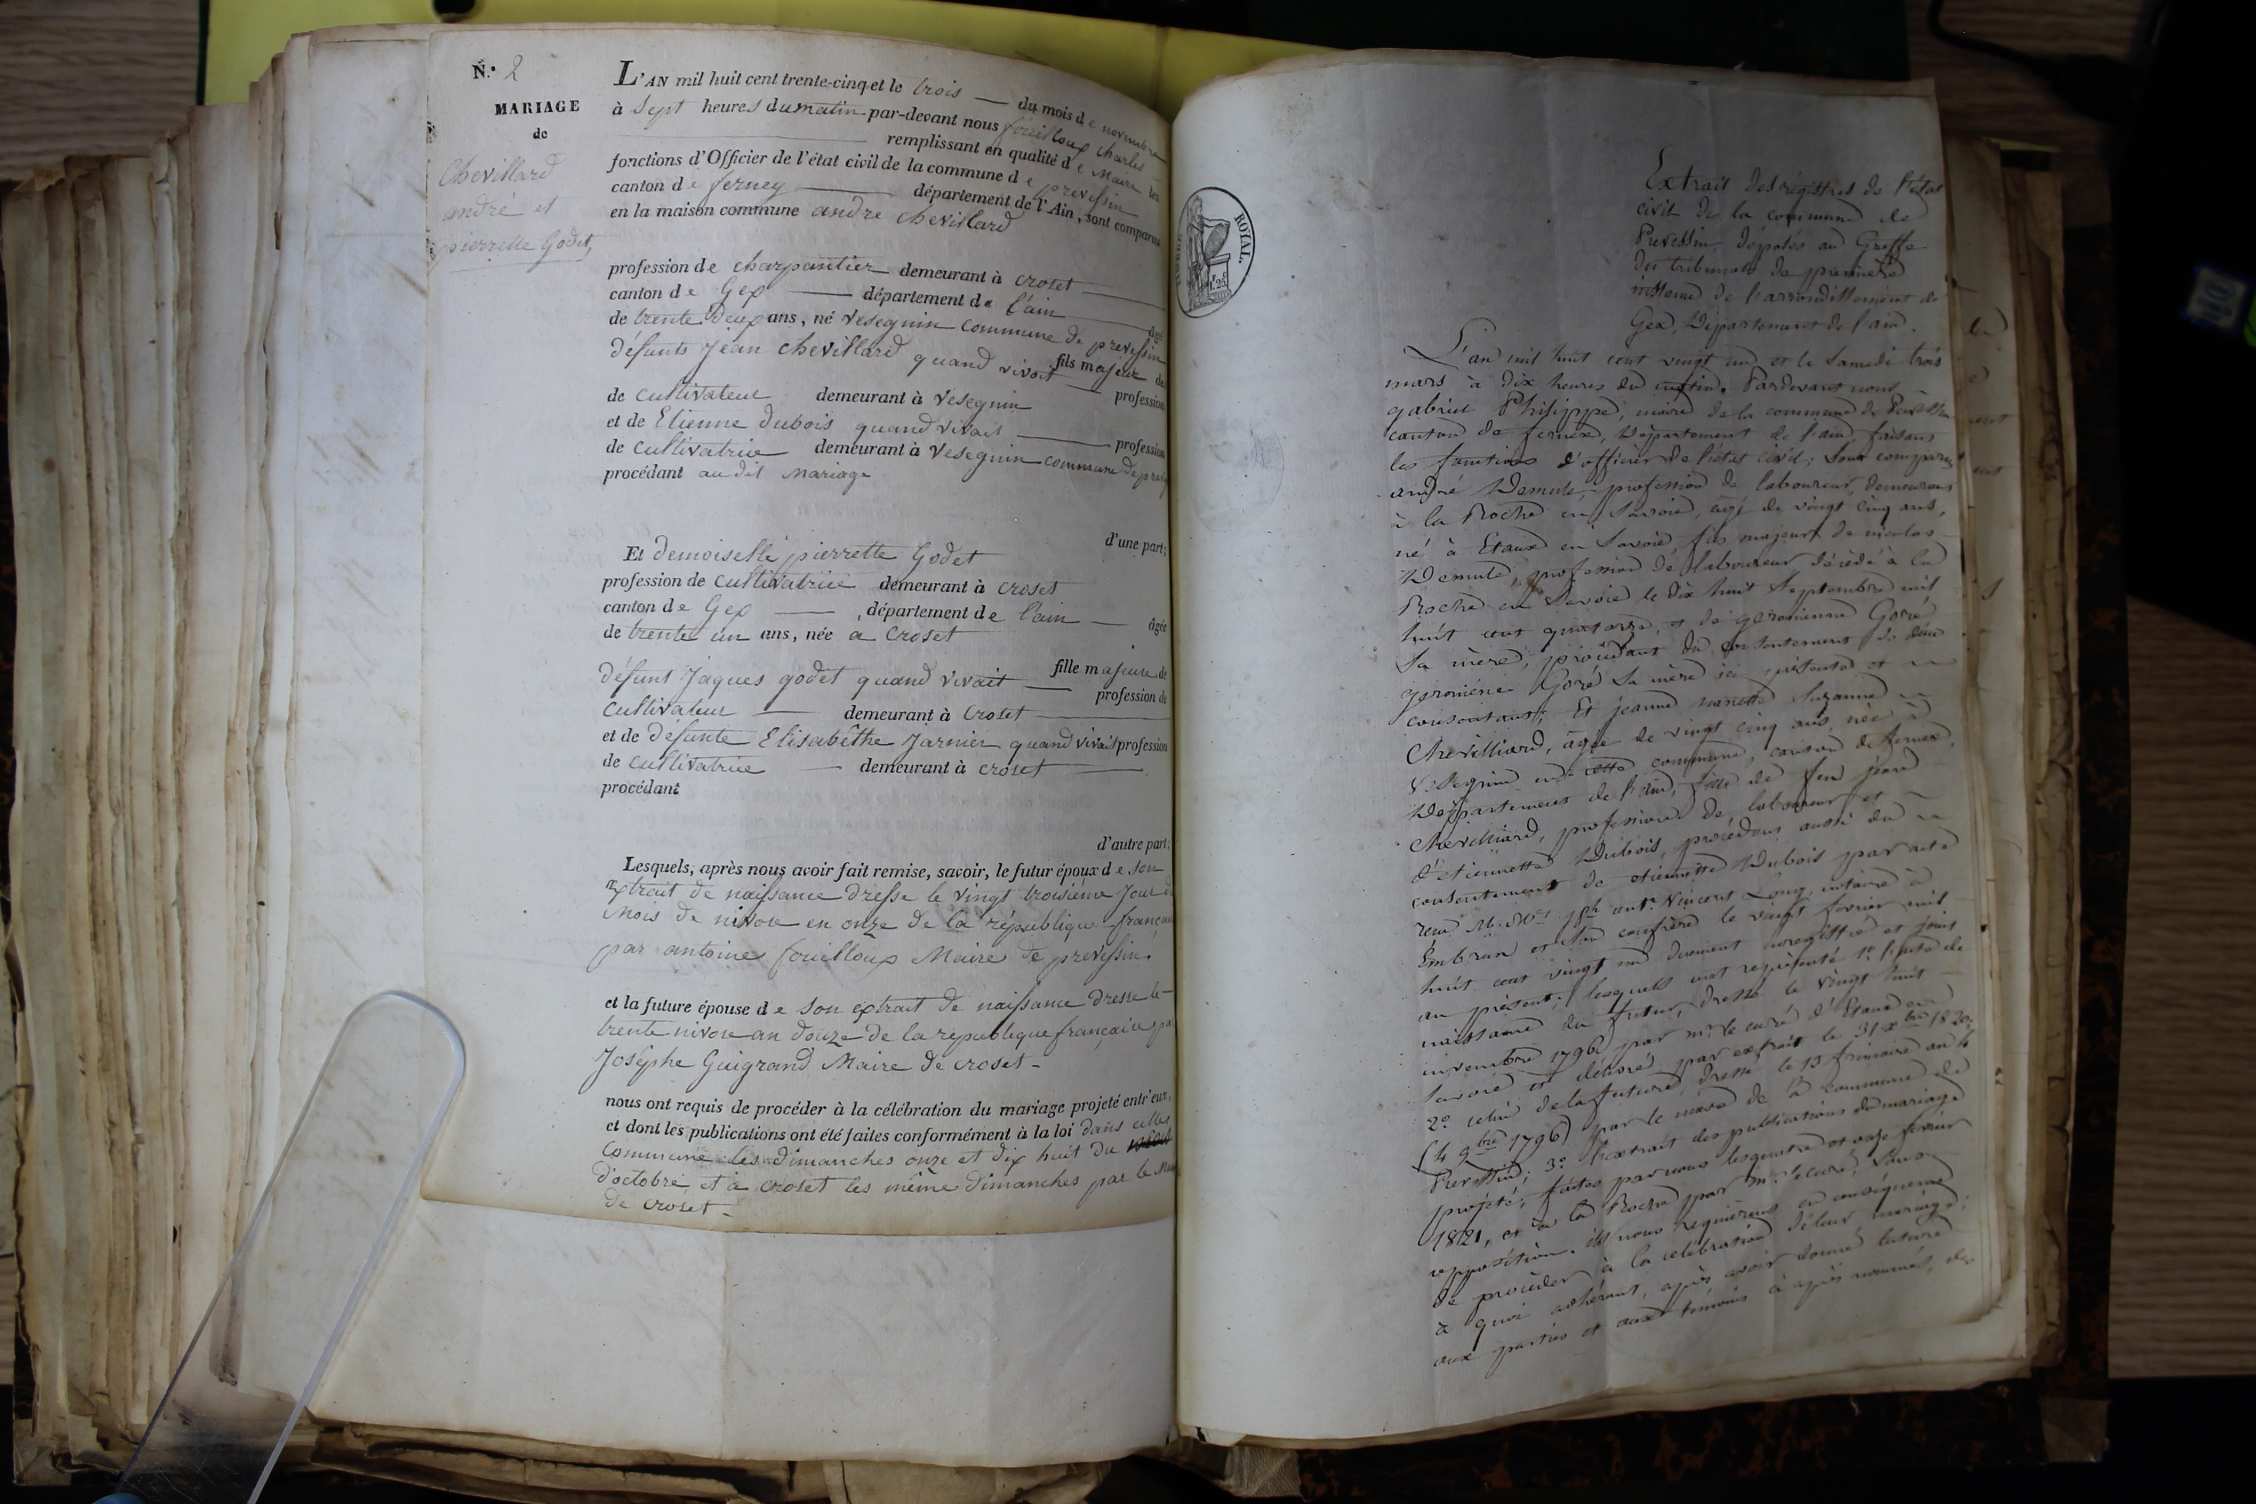 N.° 2
MARIAGE
de
Chevillard
andré et
pierrette Godet,
L'AN mil huit cent trente-cinq et le trois du mois de novembre
à Sept heures du matin par-devant nous fouilloux charles
remplissant en qualité de Maire les
fonctions d'Officier de l'état civil de la commune de prevessin
canton de ferney département de l'Ain, sont comparus
en la maison commune andré chevillard
profession de charpantier demeurant à croset
canton de Gex département de l'ain âgé
de trente deux ans, né Vesegnin commune de prevessin
fils majeur de
défunts Jean chevillard quand vivoit profession
de cultivateur demeurant à Vesegnin
et de Etienne Dubois quand vivait profession
de cultivatrice demeurant à Vesegnin commune de
procédant au dit mariage
d'une part;
Et demoiselle pierrette Godet
profession de cultivatrice demeurant à croset
canton de Gex département de l'ain âgée
de trente un ans, née a croset
fille majeure de
défunt Jaques godet quand vivait profession de
cultivateur demeurant à croset
et de défunte Elisabêthe Jarnier quand vivait profession
de cultivatrice demeurant à croset
procédant
d'autre part;
Lesquels, après nous avoir fait remise, savoir, le futur époux de son
Extrait de naissance dresse le vingt troisiéme Jour
mois de nivose en onze de la république
par antoine fouilloux Maire de prevessin.
et la future épouse de son extrait de naissance dresse le
trente nivose an douze de la republique française
Joséphe Guigrand Maire de croset
nous ont requis de procéder à la célébration du mariage projeté entr'eux,
et dont les publications ont été faites conformément à la loi dans cette
Commune les dimanches onze et dix huit du
d'octobre et a croset les même dimanches par le
de croset
ROYAL.
Extrait des régistres de l'état
civil de la commune de
Prevessin déposés au Greffe
du tribunal de premiere
instance de l'arrondissement de
Gex, Département de l'ain.
L'an mil huit cent vingt un et le Samedi trois
mars à dix heures du matin. Pardevant nous
gabriel Philippe, maire de la commune de Prevessin
canton de fernex, Département de l'ain, faisant
les fonctions d'officier de l'état civil; Sont comparus
andré Demule, profession de laboureur, demeurant
à la Roche en Savoie, agé de vingt cinq ans,
né à Etaux en Savoie fils majeur de nicolas
Demule, profession de laboureur, décédé à la
Roche en Savoie le dix huit Septembre mil
huit cent quatorze, et de Goré
Sa mère, procédant du consentement de
Goré Sa mère ici présente et
consentant; Et jeanne nanette Suzanne
Chevilliard, agée de vingt cinq ans, née à
Vésegnin en cette commune, canton de fernex,
Département de l'ain, fille de feu jean
Chevilliard, profession de laboureur et
d'étiennette Dubois, procédant aussi du
consentement de étiennette Dubois par acte
Vincent notaire à
et son confrère le vingt fevrier mil
huit cent vingt un duement enregistré et joint
au présent; lesquels ont représenté 1.° l'acte de
naissance du futur, dressé le vingt huit
novembre 1796 par mr. le curé d'Etaux en
Savoie et délivré par extrait le 31 xbre 1820;
2.° celui de la future, dressé le 13 frimaire an
(4 9bre 1796) par le maire de la commune de
Prevessin; 3.° l'extrait des publications de mariage
projeté, faites par nous les quatre et onze fevrier
1821, et à la Roche par mr. le curé, Sans
opposition. ils nous requierent en conséquence
de procéder à la célébration de leur mariage;
à quoi adhérant, après avoir donné lecture
aux parties et aux témoins ci après nommés, des